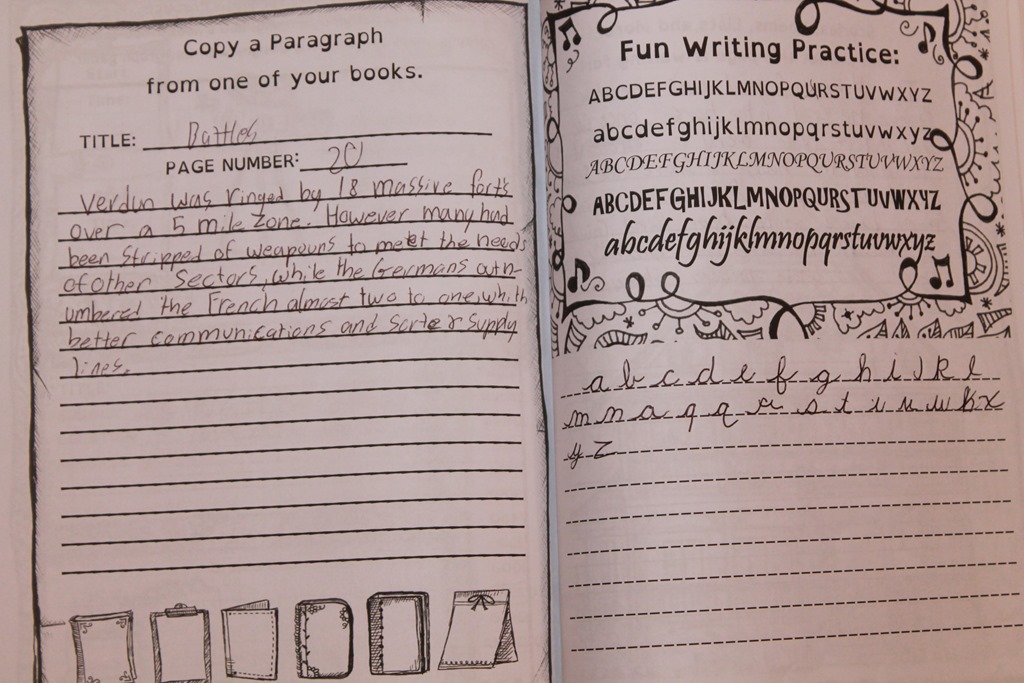 Copy a Paragraph
from one of your books.
TITLE: Battles
PAGE NUMBER: 20
Verdun was ringed by 18 massive forts
over a 5 mile zone. However many had
been stripped of weapouns to meet the needs
of other sectors, while the Germans outn-
umbered the French almost two to one, with
better communications and supply
lines.
Fun Writing Practice:
ABCDEFGHIJKLMNOPQURSTUVWXYZ
abcdefghijklmnopqrstuvwxyz
ABCDEFGHIJKLMNOPQURSTUVWXYZ
ABCDEFGHIJKLMNOPQURSTUVWXYZ
abcdefghijklmnopqrstuvwxyz
a b c d e f g h i j k l
m n a q q r s t u v w k x
y z